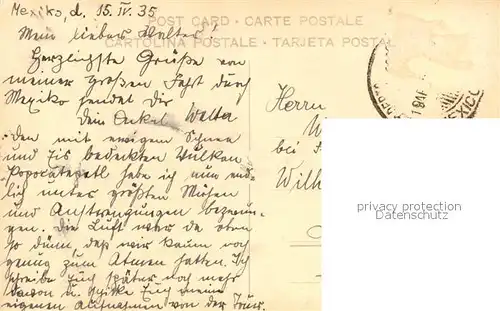 Mexiko, d. 15. IV. 35
POST CARD - CARTE POSTALE
CARTOLINA POSTALE - TARJETA POSTAL
Mein lieber Walter!
Herzlichste Grüße von
meiner großen Fahrt durch
Mexiko sendet Dir
Dein Onkel
Den mit ewigem Schnee
und Eis bedeckten Vulkan
Popocatepetl habe ich nun end-
lich unter größten Mühen
und Anstrengungen bezwun-
gen. Die Luft war da oben
so dünn, daß wir kaum noch
genug zum Atmen hatten. Ich
schreibe Euch später noch mehr
davon u. schicke Euch meine
eigenen Aufnahmen von der Tour.
Herrn
W
bei
Wilh
MEXICO
privacy protection
Datenschutz